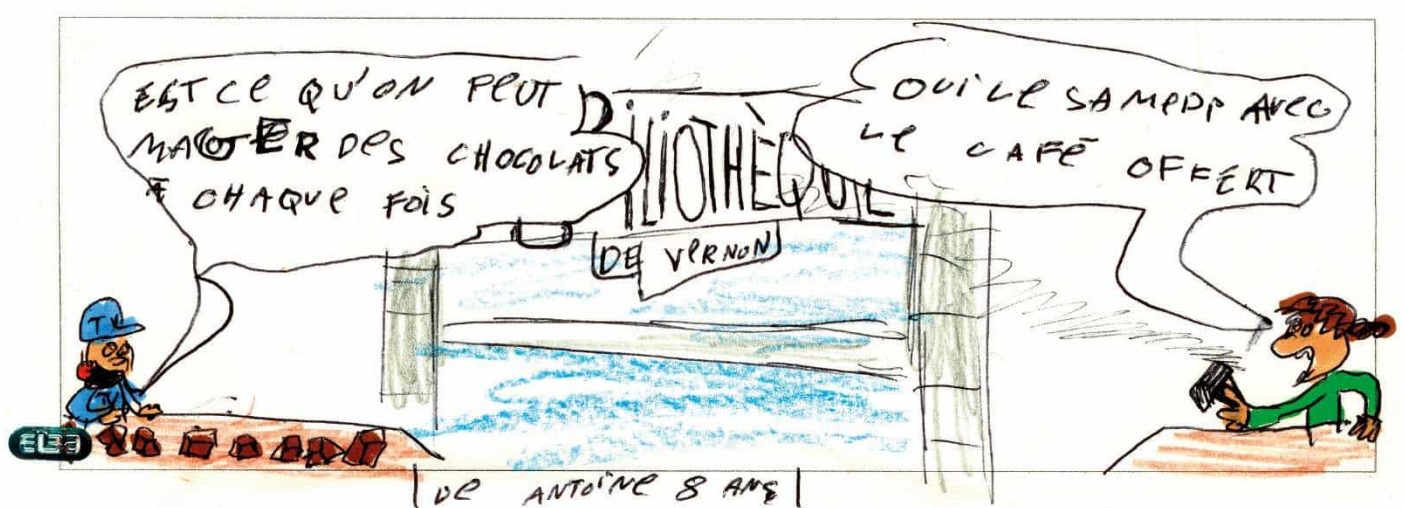 EST CE QU'ON PEUT
MANGER DES CHOCOLATS
À CHAQUE FOIS
BILIOTHÈQUE
DE VERNON
OUI LE SAMEDI AVEC
LE CAFÉ OFFERT
TV
TV
DE ANTOINE 8 ANS